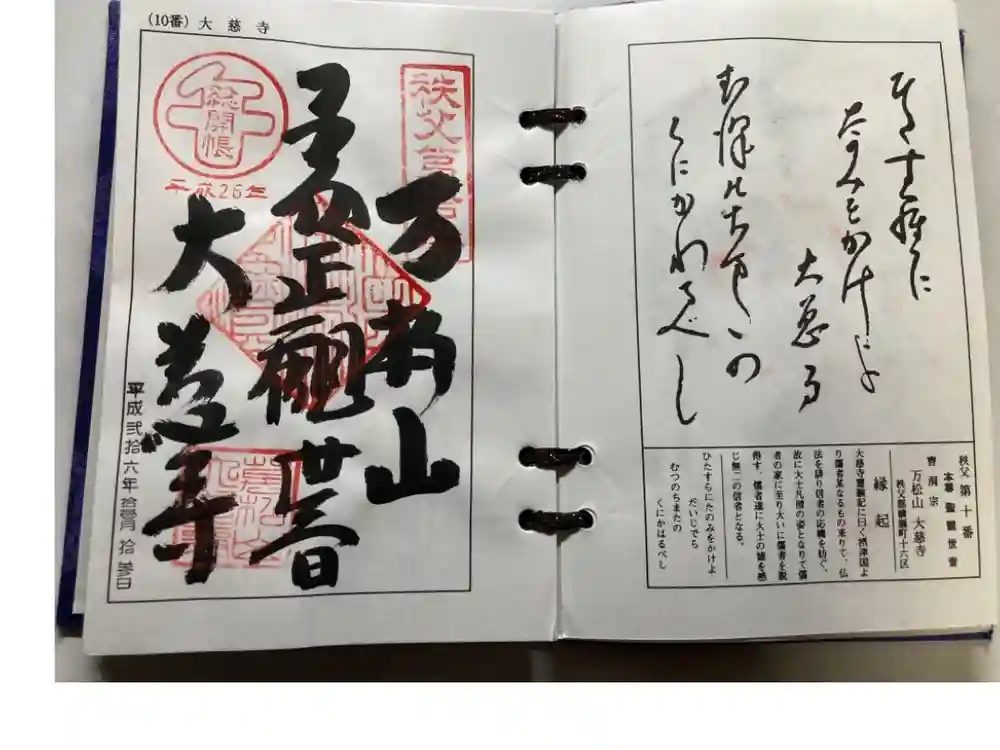 (10番) 大慈寺
秩父第
総開帳
平成26年
万松山
大慈寺
平成弐拾六年 拾壱月 拾参日
ひたすらに
たのみをかけよ
大慈寺
むつのちまたの
くにかわるべし
秩父第十番
本尊 聖観世音
曹洞宗
万松山 大慈寺
秩父郡横瀬町十六区
縁起
大慈寺霊験記に曰く摂津国よ
り儒者某なるもの来りて、仏
法を誹り信者の応機を妨ぐ、
故に大士凡僧の姿となりて儒
者の家に至り大いに儒者を説
得す、儒者遂に大士の徳を感
じ無二の信者となる。
ひたすらにたのみをかけよ
だいじでら
むつのちまたの
くにかはるべし